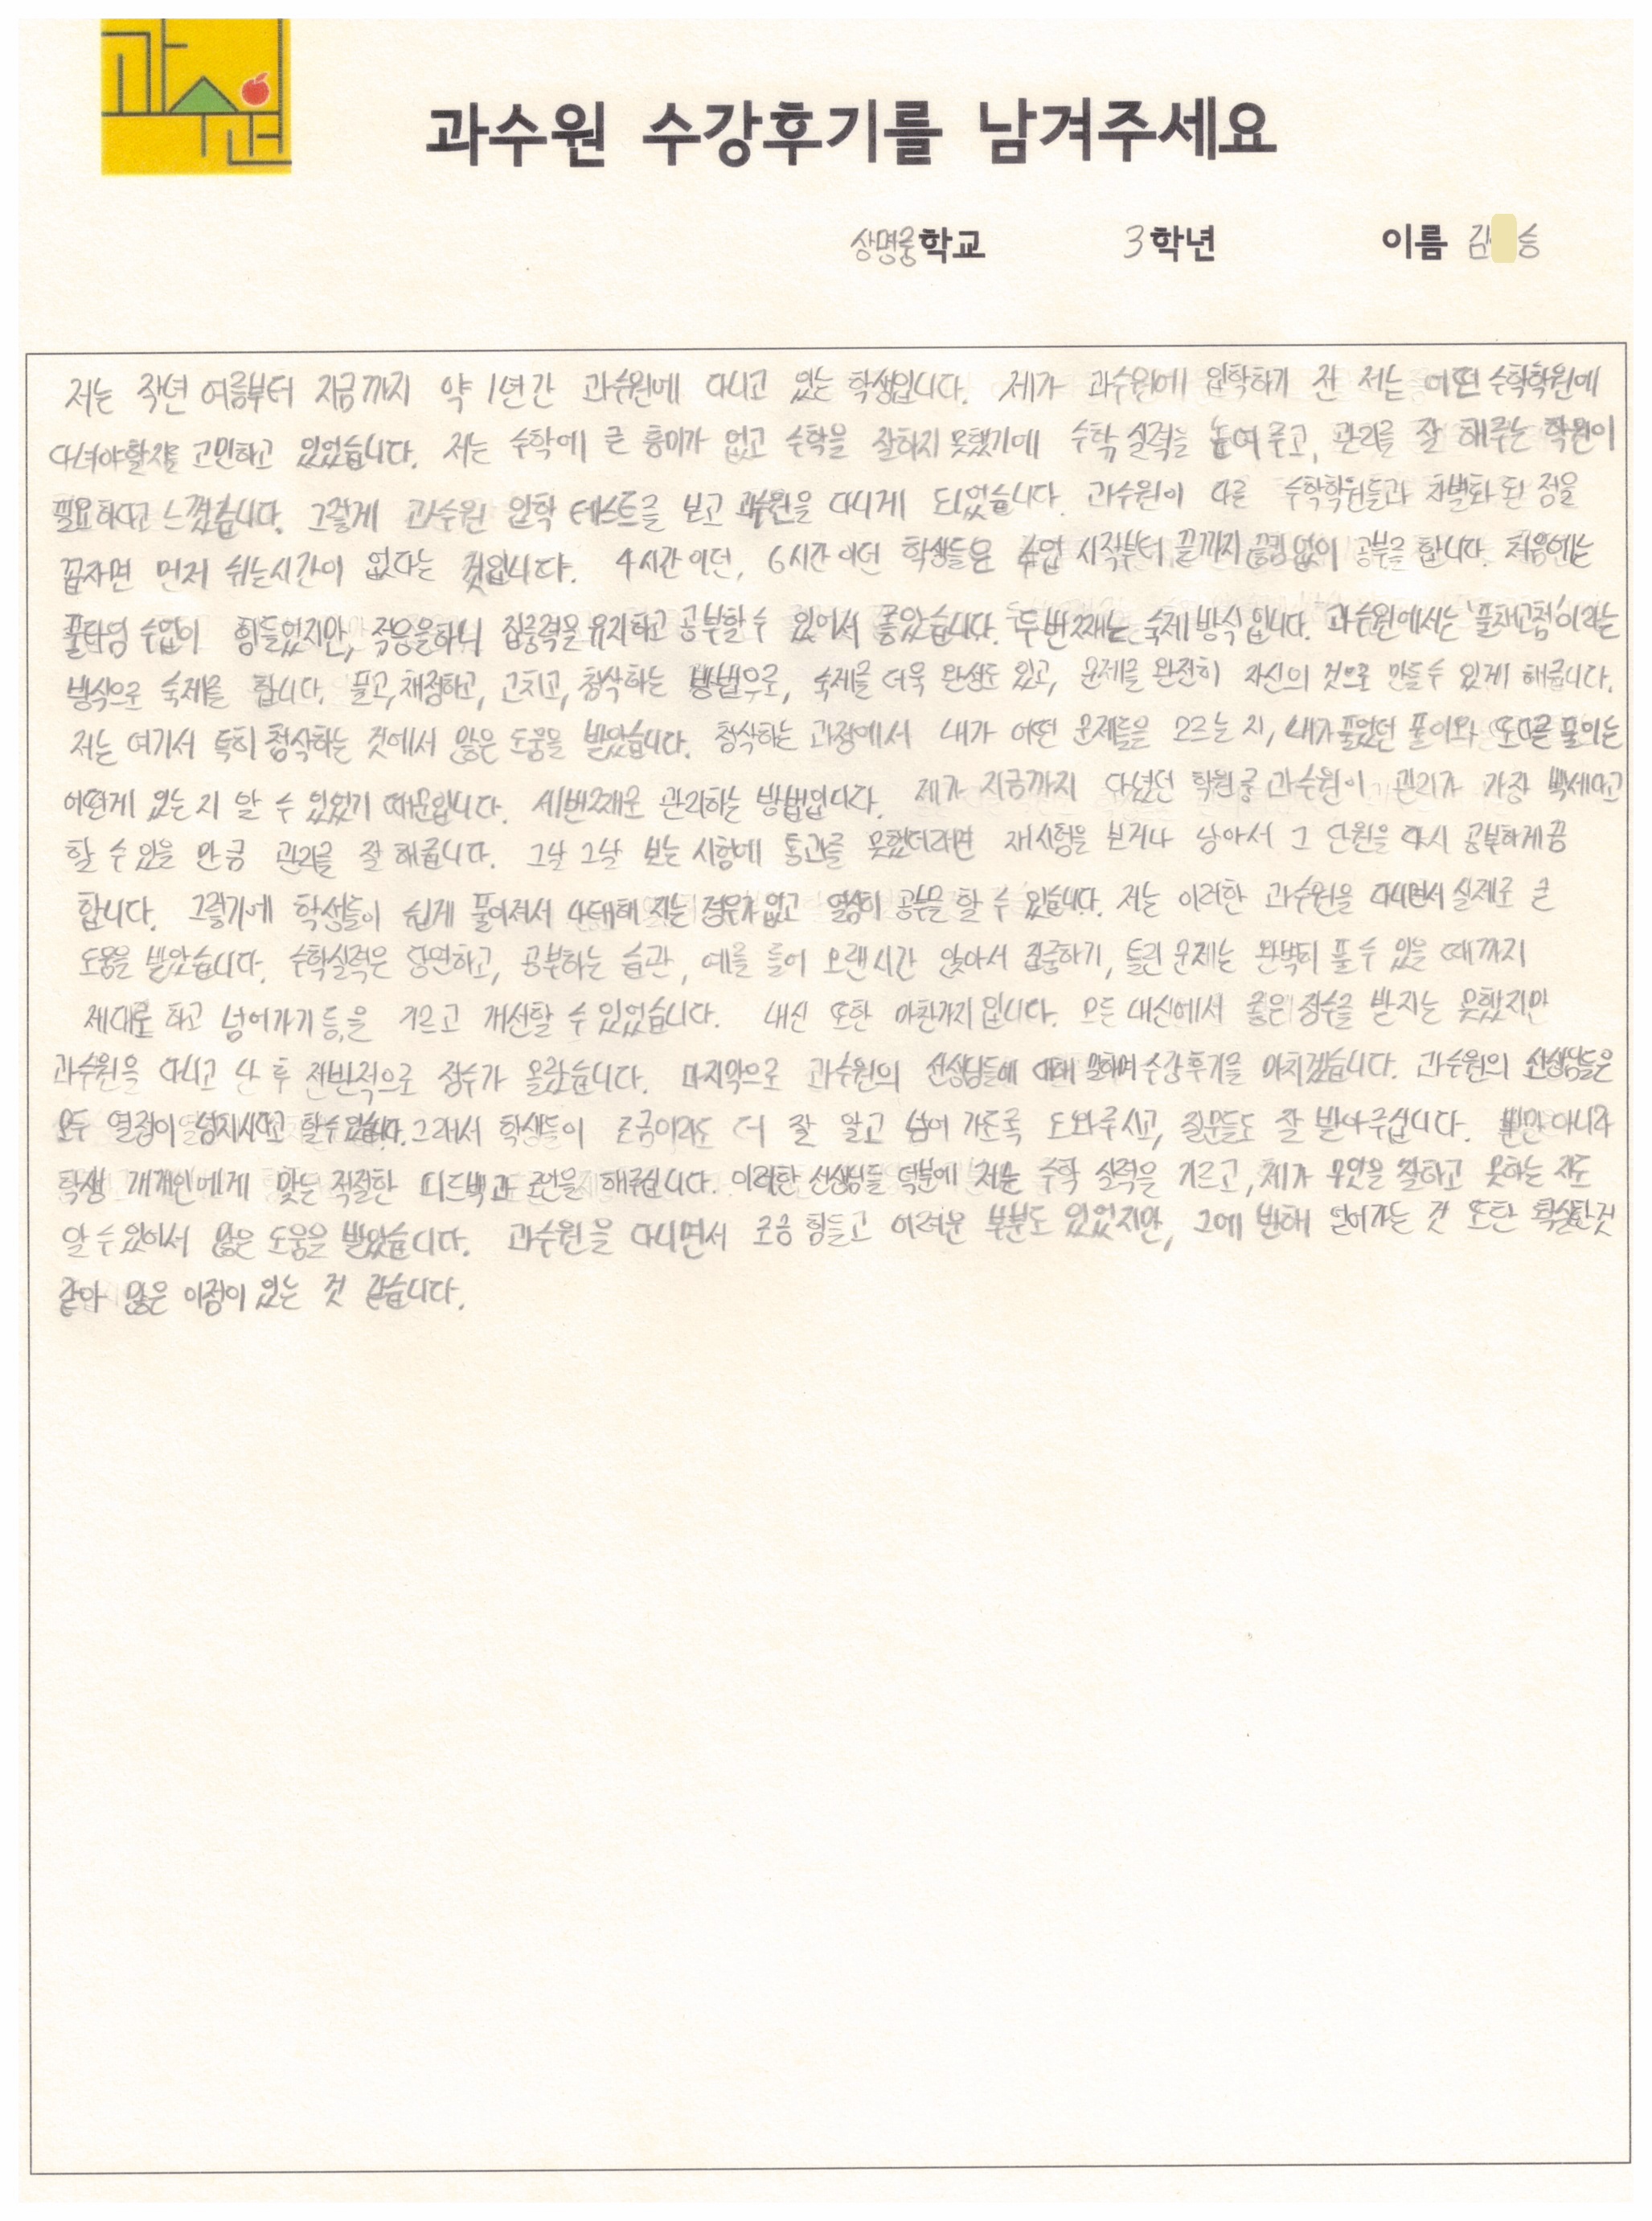 과수원
과수원 수강후기를 남겨주세요
상명중학교 3학년 이름 김 승
저는 작년 여름부터 지금까지 약 1년간 과수원에 다니고 있는 학생입니다. 제가 과수원에 입학하기 전 저는 어떤 수학학원에
다녀야할지를 고민하고 있었습니다. 저는 수학에 큰 흥미가 없고 수학을 잘하지 못했기에 수학 실력을 높여주고, 관리를 잘 해주는 학원이
필요하다고 느꼈습니다. 그렇게 과수원 입학 테스트를 보고 과수원을 다니게 되었습니다. 과수원이 다른 수학학원들과 차별화 된 점을
꼽자면 먼저 쉬는시간이 없다는 것입니다. 4시간이던, 6시간이던 학생들은 수업 시작부터 끝까지 끊김없이 공부를 합니다. 처음에는
풀타임 수업이 힘들었지만, 적응을하니 집중력을 유지하고 공부할 수 있어서 좋았습니다. 두번째는 숙제 방식입니다. 과수원에서는 '풀채고첨'이라는
방식으로 숙제를 합니다. 풀고, 채점하고, 고치고, 첨삭하는 방법으로, 숙제를 더욱 완성도 있고, 문제를 완전히 자신의 것으로 만들수 있게 해줍니다.
저는 여기서 특히 첨삭하는 것에서 많은 도움을 받았습니다. 첨삭하는 과정에서 내가 어떤 문제들을 모르는 지, 내가 풀었던 풀이와 또다른 풀이는
어떤게 있는 지 알 수 있었기 때문입니다. 세번째로 관리하는 방법입니다. 제가 지금까지 다녔던 학원중 과수원이 관리가 가장 빡세다고
할 수 있을 만큼 관리를 잘 해줍니다. 그날 그날 보는 시험에 통과를 못했더라면 재시험을 보거나 남아서 그 단원을 다시 공부하게끔
합니다. 그렇기에 학생들이 쉽게 풀어져서 나태해 지는 경우가 없고 열심히 공부를 할 수 있습니다. 저는 이러한 과수원을 다니면서 실제로 큰
도움을 받았습니다. 수학실력은 당연하고, 공부하는 습관, 예를 들어 오랜시간 앉아서 집중하기, 틀린 문제는 완벽히 풀 수 있을 때까지
제대로 하고 넘어가기 등,을 기르고 개선할 수 있었습니다. 내신 또한 마찬가지 입니다. 모든 내신에서 좋은 점수를 받지는 못했지만
과수원을 다니고 난 후 전반적으로 점수가 올랐습니다. 마지막으로 과수원의 선생님들에 대해 말하며 수강후기를 마치겠습니다. 과수원의 선생님들은
모두 열정이 넘치시다고 할수있습니다. 그래서 학생들이 조금이라도 더 잘 알고 넘어 가도록 도와주시고, 질문들도 잘 받아주십니다. 뿐만 아니라
학생 개개인에게 맞는 적절한 피드백과 조언을 해주십니다. 이러한 선생님들 덕분에 저는 수학 실력을 기르고, 제가 무엇을 잘하고 못하는 지도
알 수 있어서 많은 도움을 받았습니다. 과수원을 다니면서 조금 힘들고 어려운 부분도 있었지만, 그에 반해 얻어가는 것 또한 확실한것
같아 많은 이점이 있는 것 같습니다.